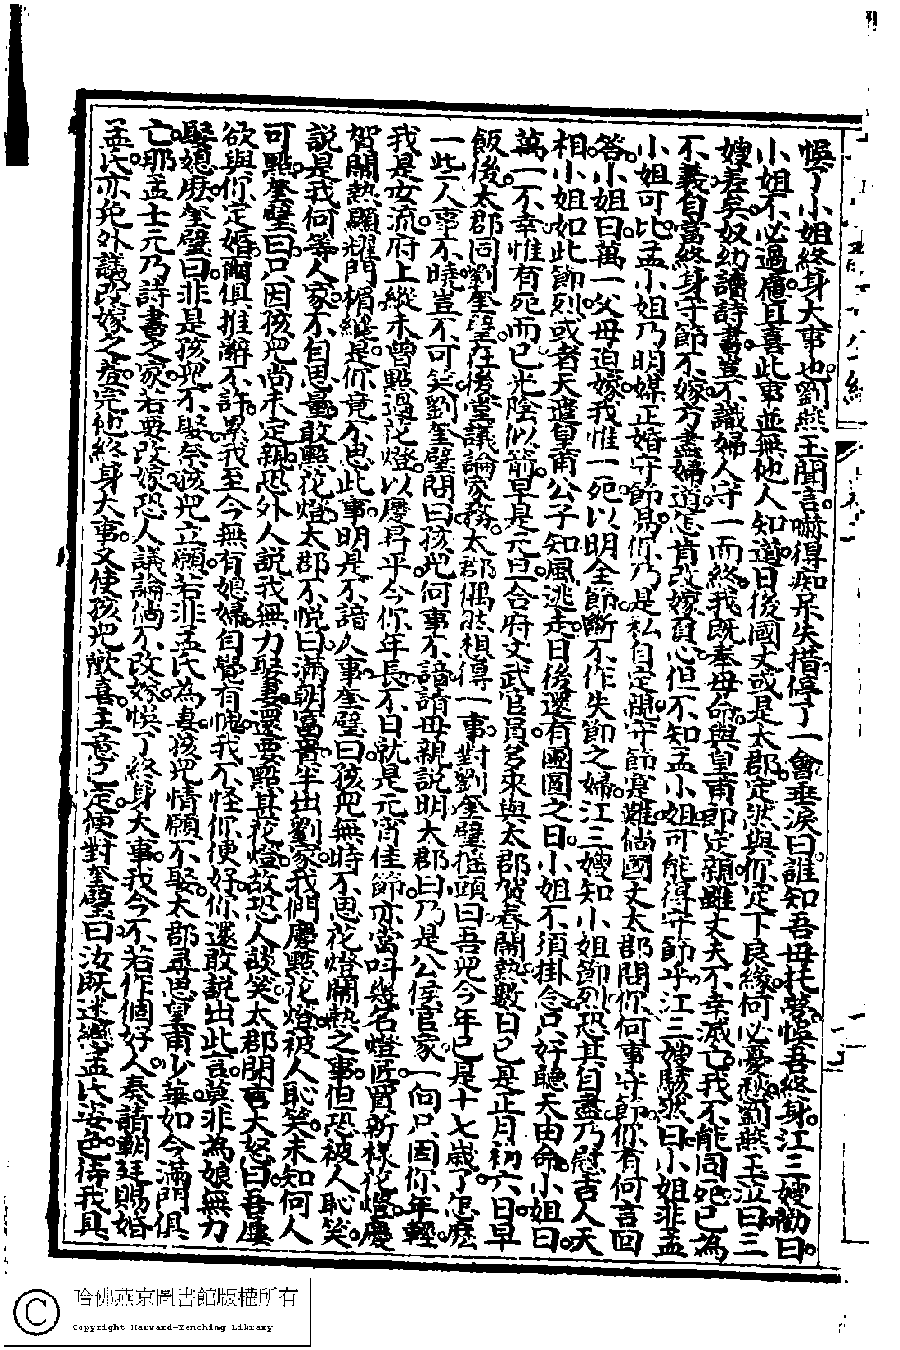 悮了小姐終身大事也劉燕玉聞言嚇得痴呆失措停了一會垂淚曰誰知吾母托夢悮吾終身江三嫂勸曰
小姐不必過慮且喜此事並無他人知道日後國丈或是太郡定然與你定下良緣何必憂愁劉燕玉泣曰三
嫂差矣奴幼讀詩書豈不識婦人守一而終我既奉母命與皇甫郎定親雖丈夫不幸滅亡我不能同死已為
不義自當終身守節不嫁方盡婦道怎肯改嫁負心但不知孟小姐可能得守節乎江三嫂駭然曰小姐非孟
小姐可比孟小姐乃明媒正婚守節易你乃是私自定親守節寔難倘國丈太郡問你何事守節你有何言回
答小姐曰萬一父母迫嫁我惟一死以明全節斷不作失節之婦江三嫂知小姐節烈恐其自盡乃慰吉人天
相小姐如此節烈或者天遮皇甫公子知風逃走日後還有團圓之日小姐不須掛念只好聽天由命小姐曰
萬一不幸惟有死而已光陰似箭早是元旦合府文武官員多來與太郡賀春鬧熱數日已是正月初六日早
飯後太郡同劉奎璧在後堂議論家務太郡偶然想得一事對劉奎璧搖頭曰吾兒今年已是十七歲了怎麽
一些人事不曉豈不可笑劉奎璧問曰孩兒何事不諳請母親說明太郡曰乃是公侯官家一向只因你年輕
我是女流府上縱未曾點過花燈以慶昇平今你年長不日就是元宵佳節亦當呌幾名燈匠置新樣花燈慶
賀鬧熱顯耀門楣縱是你竟不思此事明是不諳人事奎璧曰孩兒無時不思花燈鬧熱之事但恐被人恥笑
說是我何等人家不自思量敢點花燈太郡不悅曰滿朝富貴半出劉家我們慶點花燈被人恥笑未知何人
可點奎璧曰只因孩兒尚未定親恐外人說我無力娶妻還要點甚花燈故恐人談笑太郡聞言大怒曰吾屢
欲與你定婚爾俱推辭不許累我至今無有媳婦自覺有愧我不怪你便好你還敢說出此言莫非為娘無力
娶媳麽奎璧曰非是孩兒不娶奈孩兒立願若非孟氏為妻孩兒情願不娶太郡尋思皇甫少華如今滿門俱
亡耶孟士元乃詩書之家若要改嫁恐人議論倘不改嫁悮了終身大事我今不若作個好人奏請朝廷賜婚
孟氏亦免外議改嫁之差完他終身大事又使孩兒歡喜主意已定便對奎璧曰汝既迷戀孟氏姿色待我具
哈佛燕京圖書館版權所有
Copyright Harvard-Yenching Library